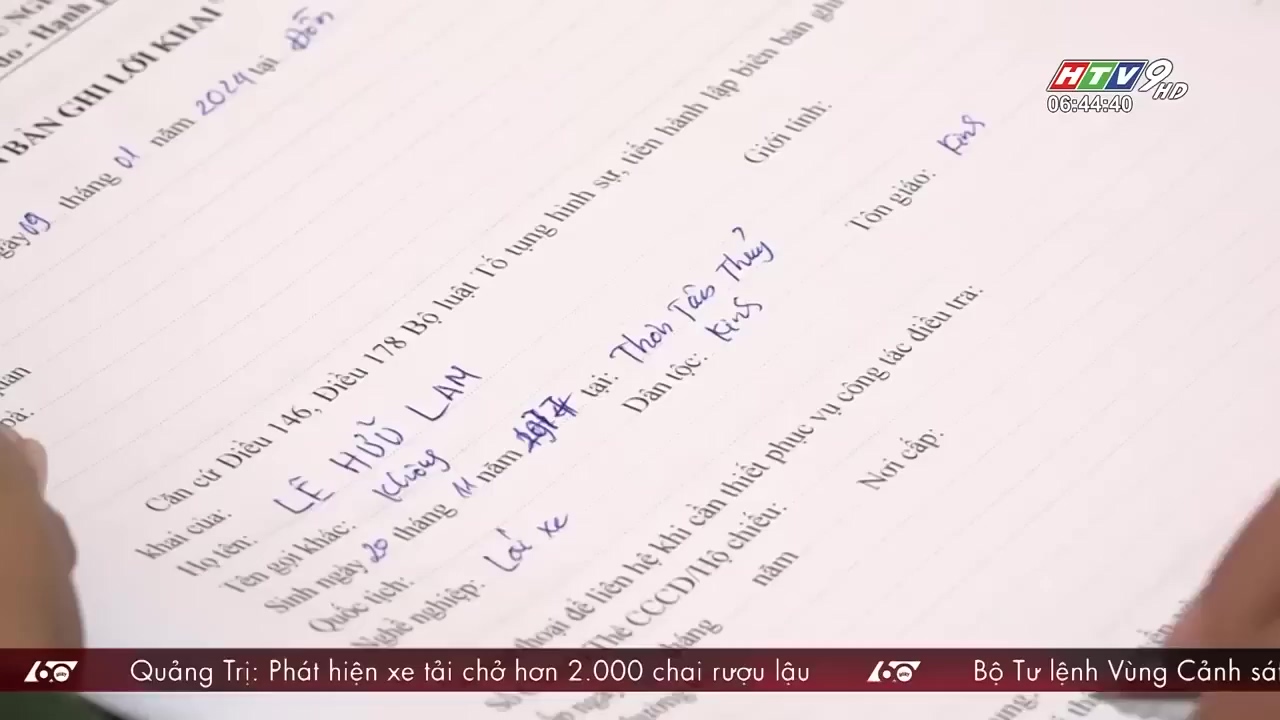 HTV9 HD
06:44:40
BẢN GHI LỜI KHAI
09 tháng 01 năm 2024 tại Đồn
Căn cứ Điều 146, Điều 178 Bộ luật Tố tụng hình sự, tiến hành lập biên bản ghi
khai của:
Họ tên: LÊ HỮU LAM Giới tính:
Tên gọi khác: Không
Sinh ngày 20 tháng 11 năm tại: Thôn Tân Thủy
Quốc tịch: Dân tộc: Kinh Tôn giáo: Kinh
Nghề nghiệp: Lái xe
thoại để liên hệ khi cần thiết phục vụ công tác điều tra:
Thẻ CCCD/Hộ chiếu: Nơi cấp:
năm
60 giây Quảng Trị: Phát hiện xe tải chở hơn 2.000 chai rượu lậu 60 giây Bộ Tư lệnh Vùng Cảnh sát